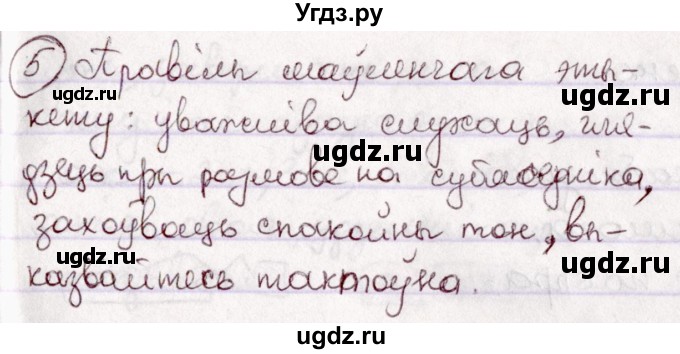 Угдз.ру
5 Правілы маўленчага эты-
кету: уважліва слухаць, гля-
дзець пры размове на субяседніка,
захоўваць спакойны тон, вы-
казвайтесь тактоўна.
ugdz.ru ugdz.ru
ugdz.ru
ugdz.ru ugdz.ru
ugdz.ru
ugdz.ru ugdz.ru
Угдз.ру